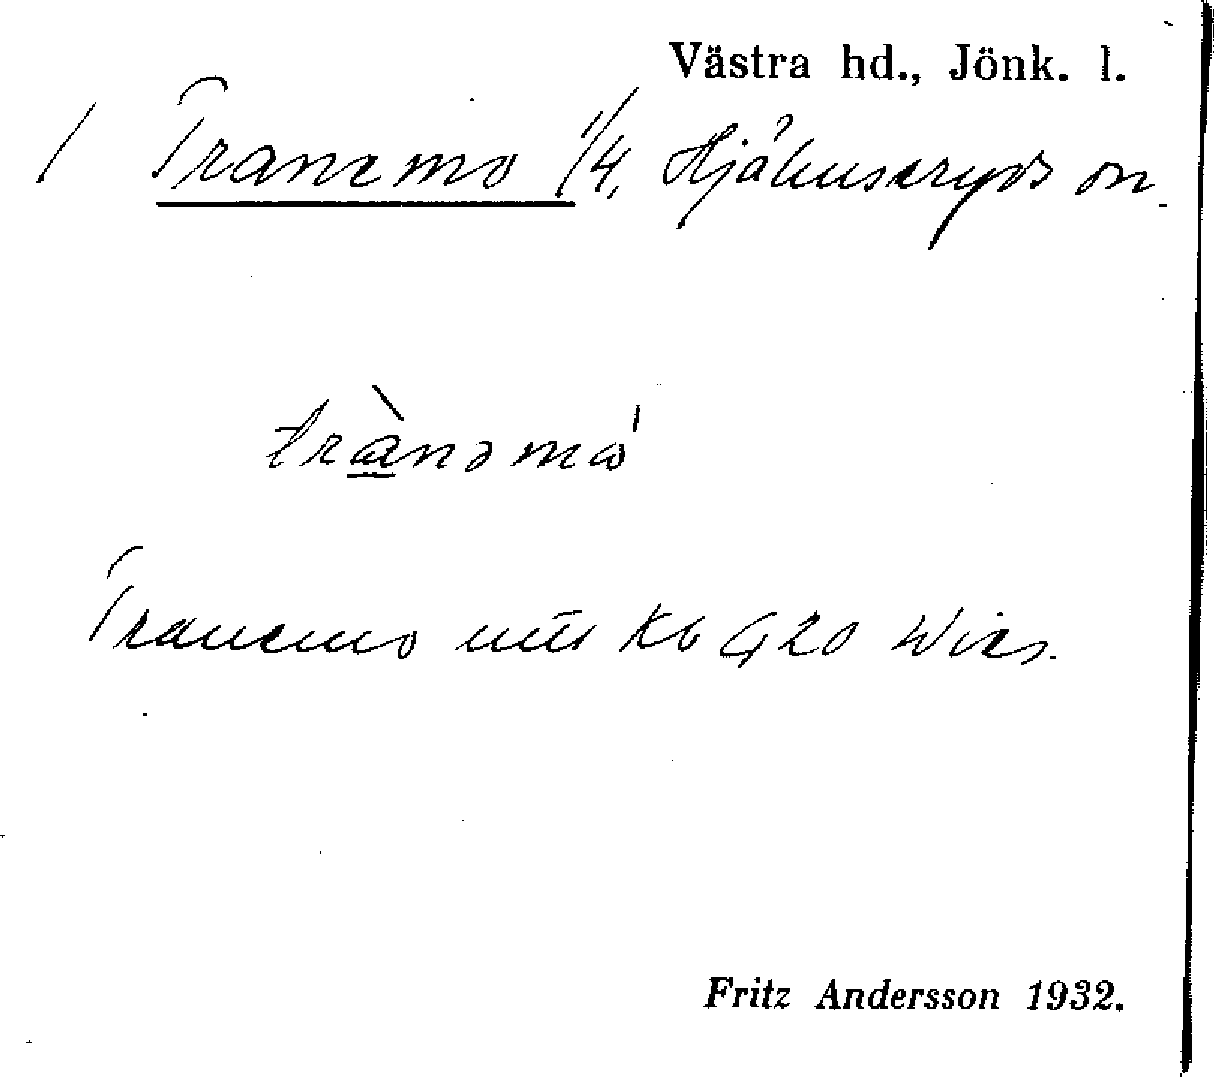 Västra hd., Jönk. l.
/ Tranemo 1/4, Hjälmseryds sn.
trànəmω̍
Tranemo Kb G 20 Wies.
Fritz Andersson 1932.